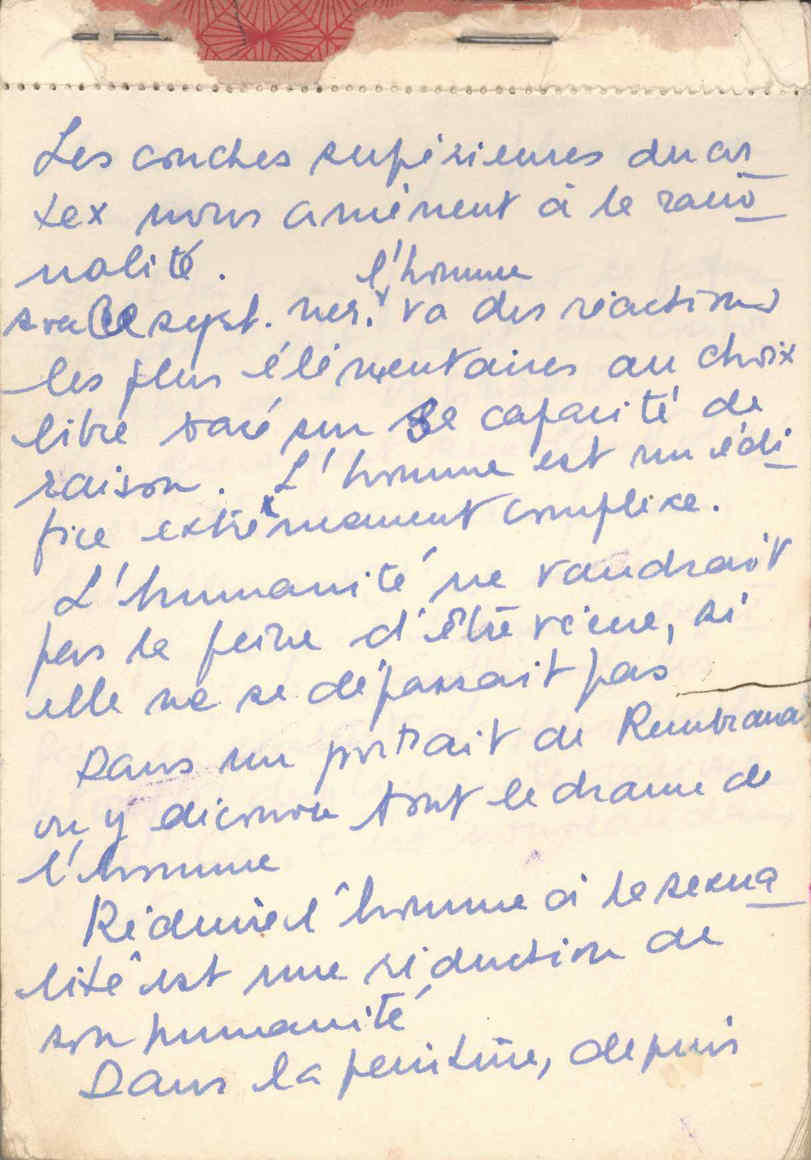 Les couches supérieures du cor
tex nous amènent à la ratio
nalité.
l'homme
avec le syst. ner. va des réactions
les plus élémentaires au choix
libre basé sur sa capacité de
raison. L'homme est un édi
fice extrêmement complexe.
L'humanité ne vaudrait
pas la peine d'être vécue, si
elle ne se dépassait pas
Dans un portrait de Rembrand
on y découvre tout le drame de
l'homme
Réduire l'homme à la sexua
lité est une réduction de
son humanité
Dans la peinture, depuis